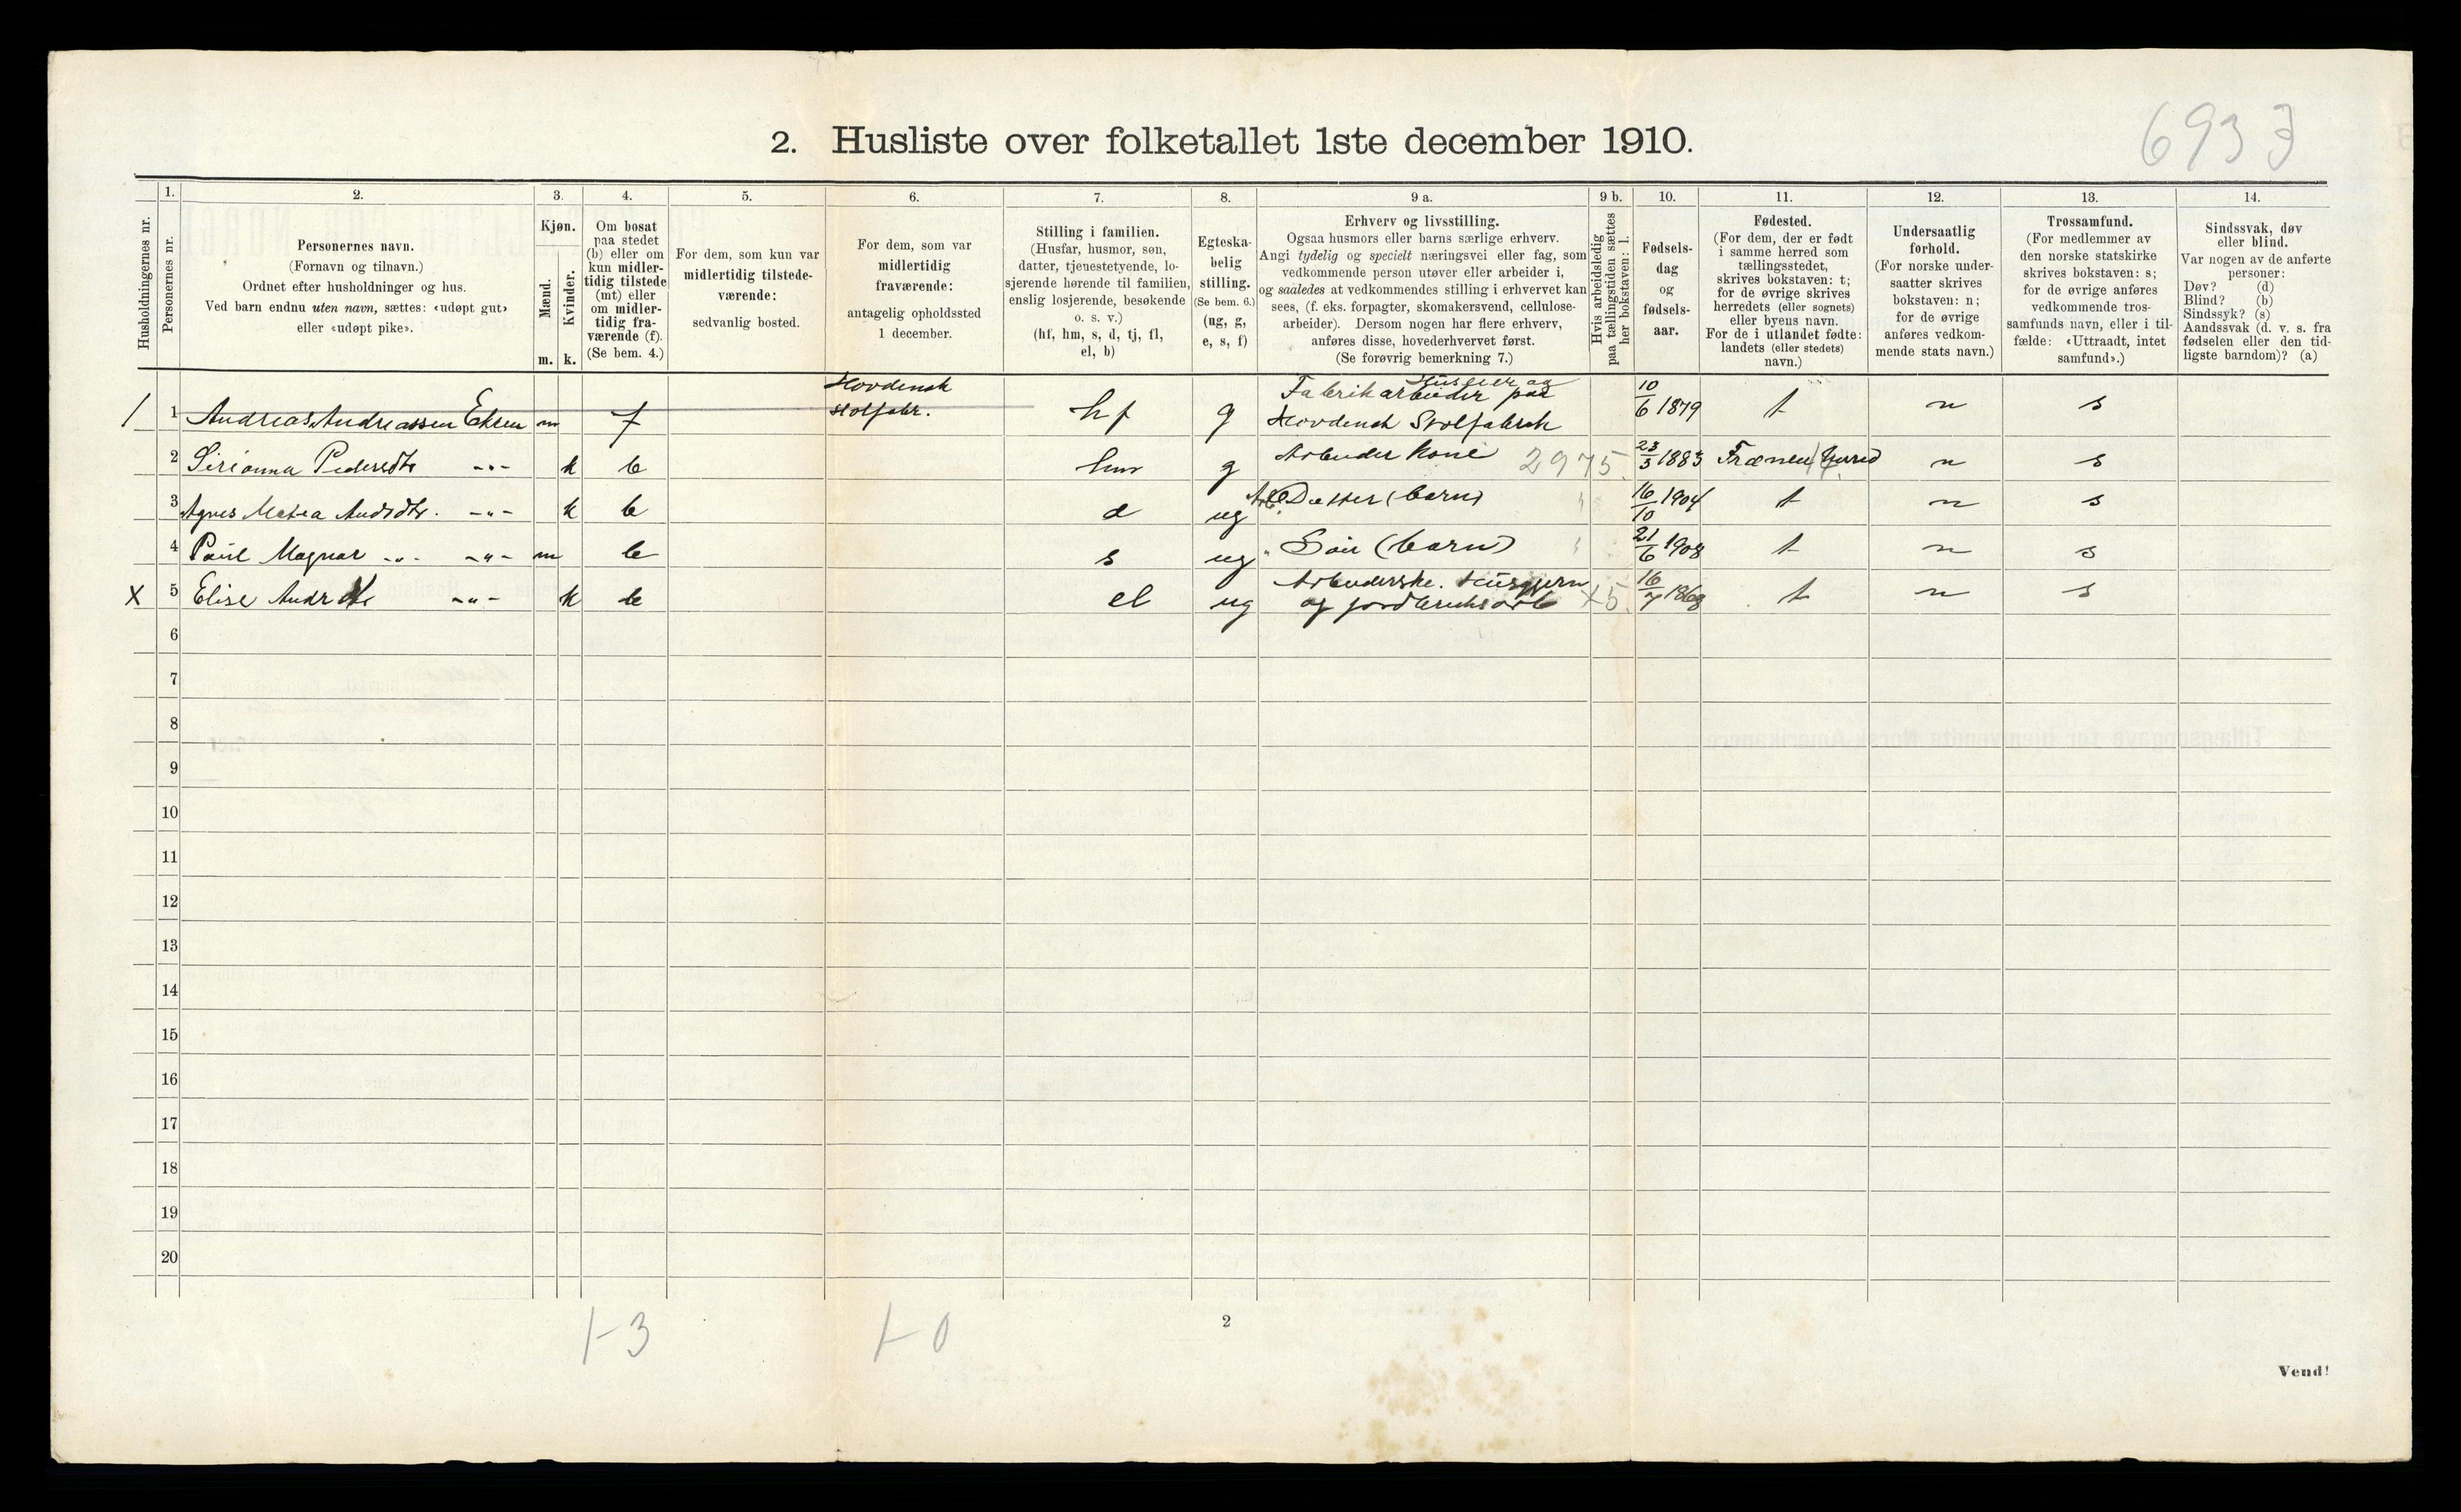 6933
2. Husliste over folketallet 1ste december 1910.
Husholdningernes nr.
1.
Personernes nr.
2.
Personernes navn.
(Fornavn og tilnavn.)
Ordnet efter husholdninger og hus.
Ved barn endnu uten navn, sættes: «udøpt gut»
eller «udøpt pike».
3.
Kjøn.
Mænd.
Kvinder.
m. k.
4.
Om bosat
paa stedet
(b) eller om
kun midler-
tidig tilstede
(mt) eller
om midler-
tidig fra-
værende (f).
(Se bem. 4.)
5.
For dem, som kun var
midlertidig tilstede-
værende:
sedvanlig bosted.
6.
For dem, som var
midlertidig
fraværende:
antagelig opholdssted
1 december.
7.
Stilling i familien.
(Husfar, husmor, søn,
datter, tjenestetyende, lo-
sjerende hørende til familien,
enslig losjerende, besøkende
o. s. v.)
(hf, hm, s, d, tj, fl,
el, b)
8.
Egteska-
belig
stilling.
(Se bem. 6.)
(ug, g,
e, s, f)
9 a.
Erhverv og livsstilling.
Ogsaa husmors eller barns særlige erhverv.
Angi tydelig og specielt næringsvei eller fag, som
vedkommende person utøver eller arbeider i,
og saaledes at vedkommendes stilling i erhvervet kan
sees, (f. eks. forpagter, skomakersvend, cellulose-
arbeider). Dersom nogen har flere erhverv,
anføres disse, hovederhvervet først.
(Se forøvrig bemerkning 7.)
9 b.
Hvis arbeidsledig
paa tællingstiden sættes
her bokstaven: l.
10.
Fødsels-
dag
og
fødsels-
aar.
11.
Fødested.
(For dem, der er født
i samme herred som
tællingsstedet,
skrives bokstaven: t;
for de øvrige skrives
herredets (eller sognets)
eller byens navn.
For de i utlandet fødte:
landets (eller stedets)
navn.)
12.
Undersaatlig
forhold.
(For norske under-
saatter skrives
bokstaven: n;
for de øvrige
anføres vedkom-
mende stats navn.)
13.
Trossamfund.
(For medlemmer av
den norske statskirke
skrives bokstaven: s;
for de øvrige anføres
vedkommende tros-
samfunds navn, eller i til-
fælde: «Uttraadt, intet
samfund».)
14.
Sindssvak, døv
eller blind.
Var nogen av de anførte
personer:
Døv? (d)
Blind? (b)
Sindssyk? (s)
Aandssvak (d. v. s. fra
fødselen eller den tid-
ligste barndom)? (a)
Hovdenak
Stolfabr.
Huseier og
Fabrikarbeider paa
Hovdenak Stolfabrik
1 Andreas Andreassen m f hf g 10/6 1879 t n s
2 Pedersdtr -"- k b hm g Arbeider Kone 2975 23/3 1883 Frænen Herred n s
3 Agnes -"- k b d ug Datter (barn) 16/10 1904 t n s
4 Paul Magnar -"- -"- m b s ug " Søn (barn) 21/6 1908 t n s
X 5 Elise -"- k b el ug Arbeiderske. Husgjern
og jordbruksarb X5. 16/7 1868 t n s
6
7
8
9
10
11
12
13
14
15
16
17
18
19
20
1-3
1-0
2
Vend!